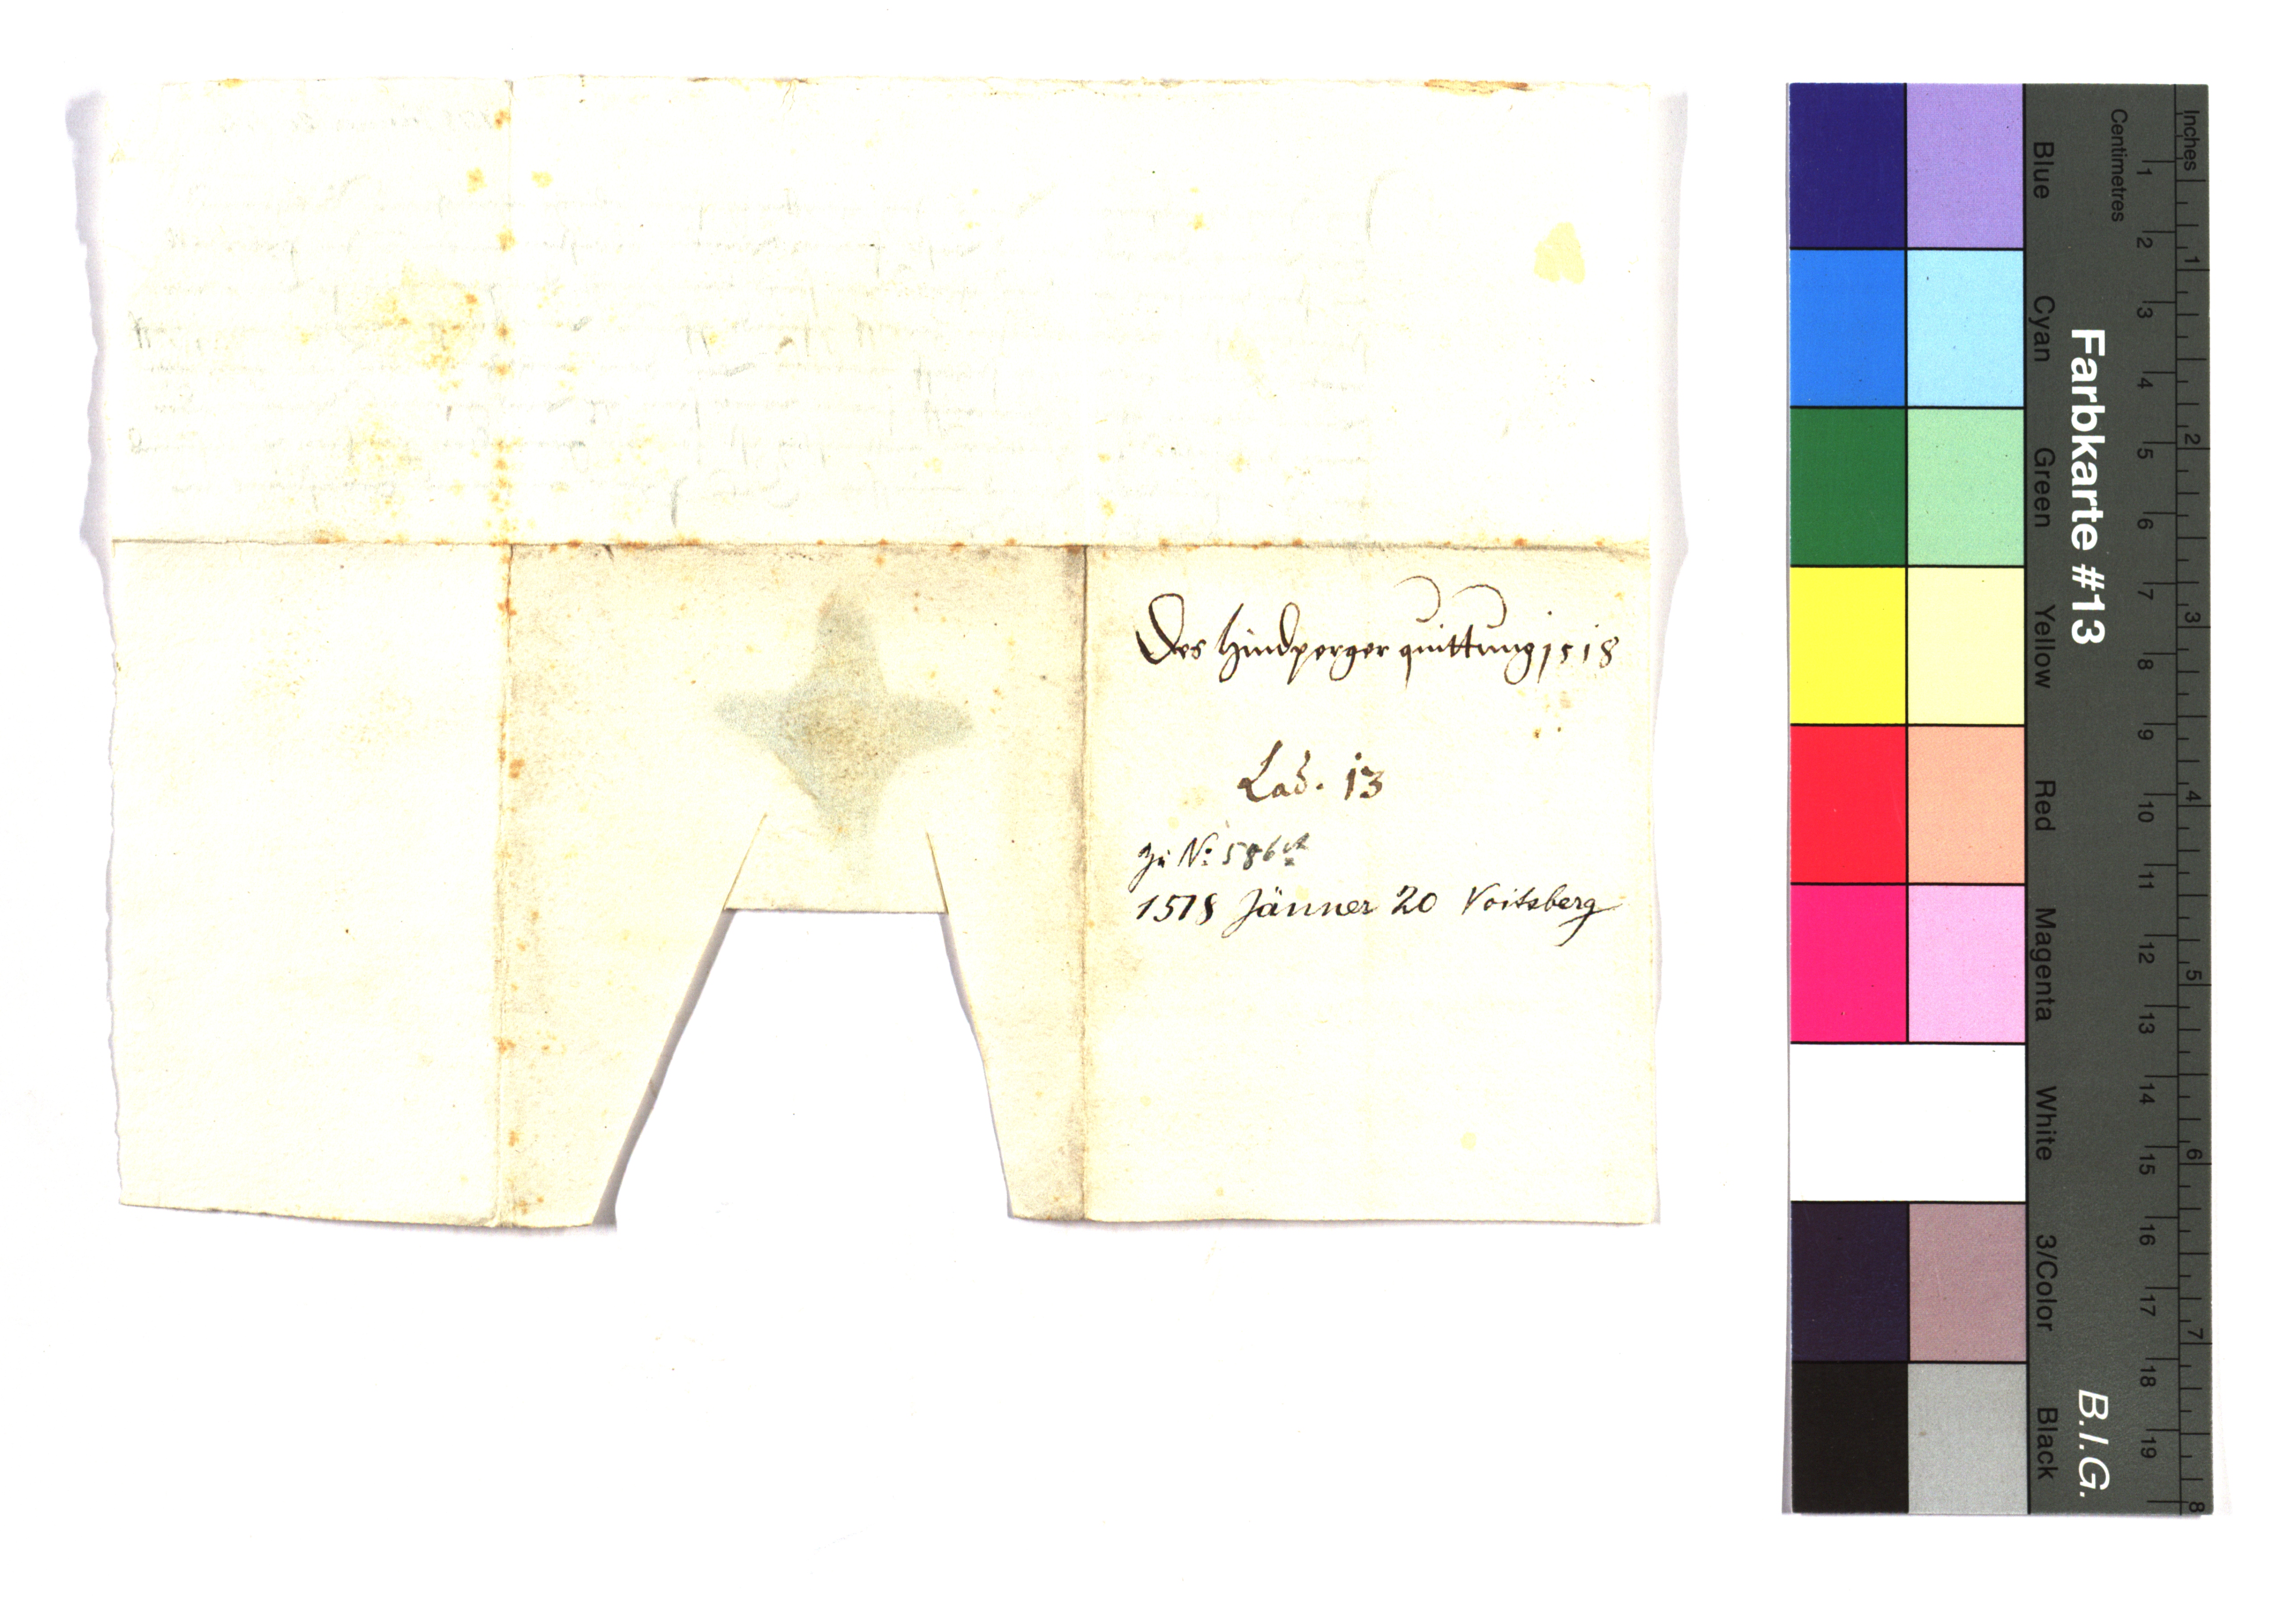 Des Hindperger quittung 1518
Lad. 13
Zu N: 586
1518 Jänner 20 Voitsberg
Farbkarte #13
B.I.G.
Centimetres
Inches
Blue
Cyan
Green
Yellow
Red
Magenta
White
3/Color
Black
1 2 3 4 5 6 7 8 9 10 11 12 13 14 15 16 17 18 19
1 2 3 4 5 6 7 8